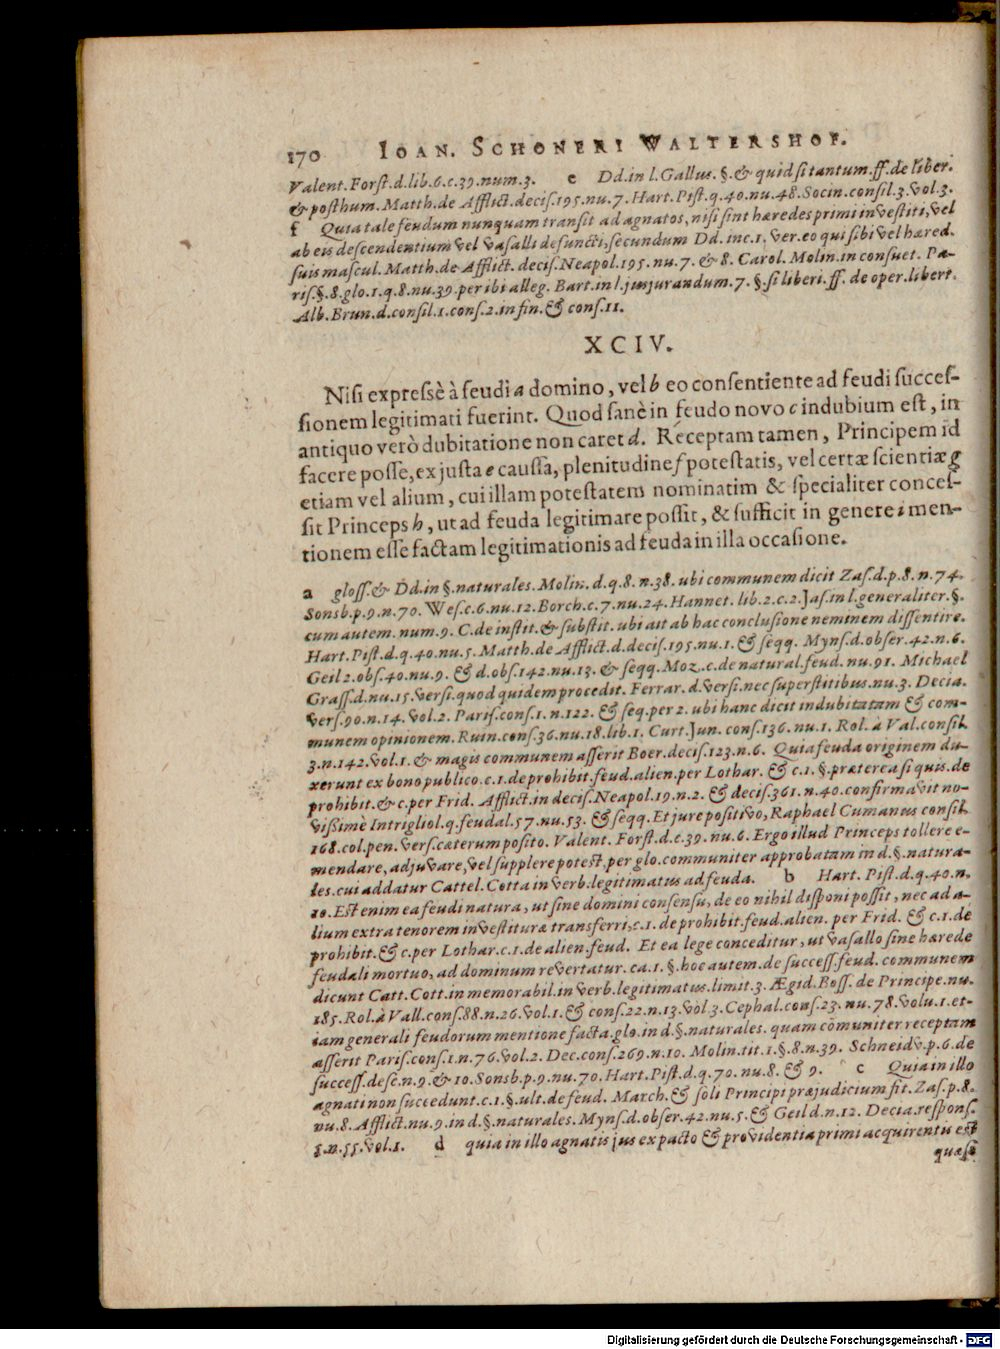 170 IOAN. SCHONERI WALTERSHOF.
Valent. Forſt. d. lib. 6. c. 39. num. 3. e Dd. in l. Gallus. §. & quid ſi tantum. ff. de liber.
& poſthum. Matth. de Afflict. deciſ. 195. nu. 7. Hart. Piſt. q. 40. nu. 48. Socin. conſil. 3. vol. 3.
f Quia tale feudum nunquam tranſit ad agnatos, niſi ſint hæredes primi inveſtiti, vel
ab eis deſcendentium vel vaſalli defuncti, ſecundum Dd. in c. 1. ver. eo qui ſibi vel hæred.
ſuis maſcul. Matth. de Afflict. deciſ. Neapol. 195. nu. 7. & 8. Carol. Molin. in conſuet. Pa-
riſ. §. 8. glo. 1. q. 8. nu. 39. per ibi alleg. Bart. in l. jusjurandum. 7. §. ſi liberi. ff. de oper. libert.
Alb. Brun. d. conſil. 1. conſ. 2. in fin. & conſ. 11.
XCIV.
Niſi expreſsè à feudi a domino, vel b eo conſentiente ad feudi ſucceſ-
ſionem legitimati fuerint. Quod ſanè in feudo novo c indubium eſt, in
antiquo verò dubitatione non caret d. Receptam tamen, Principem id
facere poſſe, ex juſta e cauſſa, plenitudine f poteſtatis, vel certæ ſcientiæ g
etiam vel alium, cui illam poteſtatem nominatim & ſpecialiter conceſ-
ſit Princeps h, ut ad feuda legitimare poſſit, & ſufficit in genere i men-
tionem eſſe factam legitimationis ad feuda in illa occaſione.
a gloſſ. & Dd. in §. naturales. Molin. d. q. 8. n. 38. ubi communem dicit Zaſ. d. p. 8. n. 74.
Sonsb. p. 9. n. 70. Weſ. c. 6. nu. 12. Borch. c. 7. nu. 24. Hannet. lib. 2. c. 2. Jaſ. in l. generaliter. §.
cum autem. num. 9. C. de inſtit. & ſubſtit. ubi ait ab hac concluſione neminem diſſentire.
Hart. Piſt. d. q. 40. nu. 5. Matth. de Afflict. d. deciſ. 195. nu. 1. & ſeqq. Mynſ. d. obſer. 42. n. 6.
Geil 2. obſ. 40. nu. 9. & d. obſ. 142. nu. 13. & ſeqq. Moz. c. de natural. feud. nu. 91. Michael
Graſſ. d. nu. 15. verſi. quod quidem procedit. Ferrar. d. verſi. nec ſuperſtitibus. nu. 3. Decia.
verſ. 90. n. 14. vol. 2. Pariſ. conſ. 1. n. 122. & ſeq. per 2. ubi hanc dicit indubitatam & com-
munem opinionem. Ruin. conſ. 36. nu. 18. lib. 1. Curt. Jun. conſ. 136. nu. 1. Rol. à Val. conſil.
3. n. 142. vol. 1. & magis communem aſſerit Boer. deciſ. 123. n. 6. Quia feuda originem du-
xerunt ex bono publico. c. 1. de prohibit. feud. alien. per Lothar. & c. 1. §. præterea ſi quis. de
prohibit. & c. per Frid. Afflict. in deciſ. Neapol. 19. n. 2. & deciſ. 361. n. 40. confirmavit no-
viſsimè Intrigliol. q. feudal. 57. nu. 53. & ſeqq. Et jure poſitivo, Raphael Cumanus conſil.
168. col. pen. verſ. cæterum poſito. Valent. Forſt. d. c. 39. nu. 6. Ergo illud Princeps tollere e-
mendare, adjuvare, vel ſupplere poteſt, per glo. communiter approbatam in d. §. natura-
les. cui addatur Cattel. Cotta in verb. legitimatus ad feuda. b Hart. Piſt. d. q. 40. n.
10. Eſt enim ea feudi natura, ut ſine domini conſenſu, de eo nihil diſponi poſſit, nec ad a-
lium extra tenorem inveſtituræ transferri, c. 1. de prohibit. feud. alien. per Frid. & c. 1. de
prohibit. & c. per Lothar. c. 1. de alien. feud. Et ea lege conceditur, ut vaſallo ſine hærede
feudali mortuo, ad dominum revertatur. ca. 1. §. hoc autem. de ſucceſſ. feud. communem
dicunt Catt. Cott. in memorabil. in verb. legitimatus. limit. 3. Ægid. Boſſ. de Principe. nu.
185. Rol. à Vall. conſ. 88. n. 26. vol. 1. & conſ. 22. n. 13. vol. 3. Cephal. conſ. 23. nu. 78. volu. 1. et-
iam generali feudorum mentione facta. glo. in d. §. naturales. quam cōmuniter receptam
aſſerit Pariſ. conſ. 1. n. 76. vol. 2. Dec. conſ. 269. n. 10. Molin. tit. 1. §. 8. n. 39. Schneidv. p. 6. de
ſucceſſ. deſc. n. 9. & 10. Sonsb. p. 9. nu. 70. Hart. Piſt. d. q. 70. nu. 8. & 9. c Quia in illo
agnati non ſuccedunt. c. 1. §. ult. de feud. March. & ſoli Principi præjudicium fit. Zaſ. p. 8.
nu. 8. Afflict. nu. 9. in d. §. naturales. Mynſ. d. obſer. 42. nu. 5. & Geil d. n. 12. Decia. reſponſ.
5. n. 55. vol. 1. d quia in illo agnatis jus ex pacto & providentia primi acquirentis eſt
quæſi-